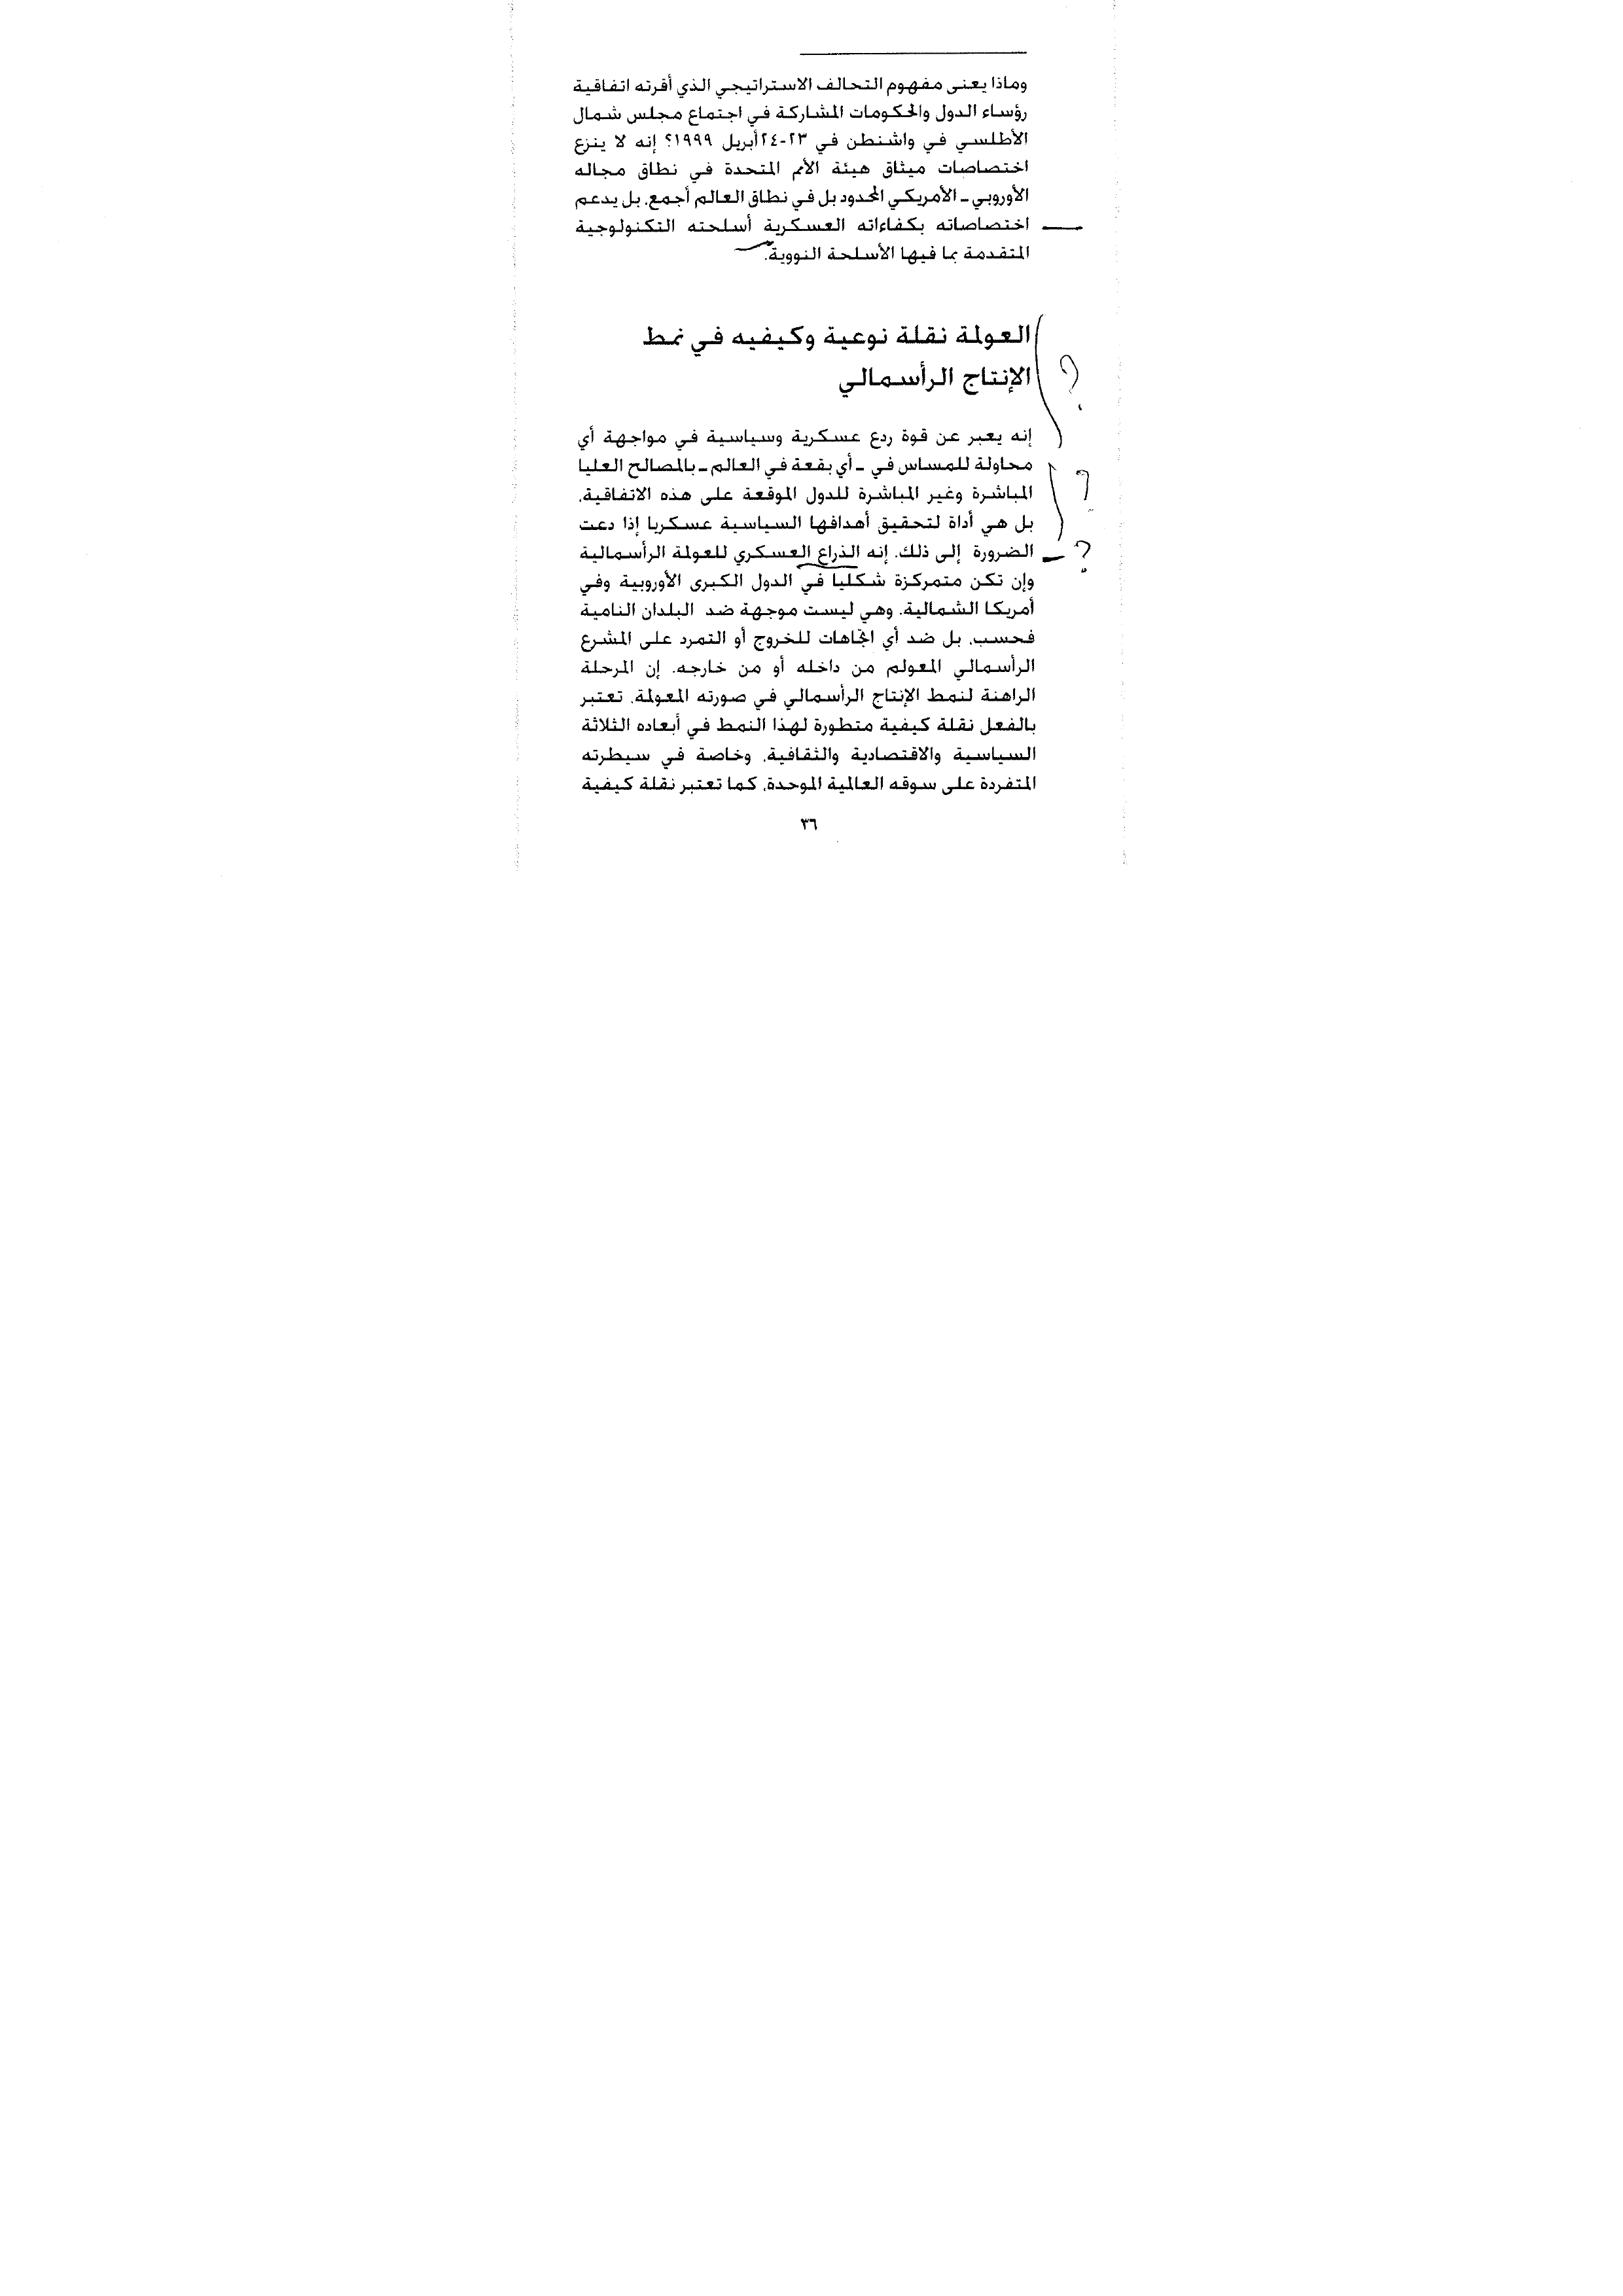 وماذا يعنى مفهوم التحالف الاستراتيجي الذي أقرته اتفاقية
رؤساء الدول والحكومات المشاركة في اجتماع مجلس شمال
الأطلسي في واشنطن في ٢٣-٢٤أبريل ١٩٩٩؟ إنه لا ينزع
اختصاصات ميثاق هيئة الأمم المتحدة في نطاق مجاله
الأوروبي - الأمريكي المحدود بل في نطاق العالم أجمع. بل يدعم
اختصاصاته بكفاءاته العسكرية أسلحته التكنولوجية
المتقدمة بما فيها الأسلحة النووية.
العولمة نقلة نوعية وكيفيه في نمط
الإنتاج الرأسمالي
؟
إنه يعبر عن قوة ردع عسكرية وسياسية في مواجهة أي
محاولة للمساس في - أي بقعة في العالم - بالمصالح العليا
المباشرة وغير المباشرة للدول الموقعة على هذه الاتفاقية.
؟
بل هي أداة لتحقيق أهدافها السياسية عسكريا إذا دعت
الضرورة إلى ذلك. إنه الذراع العسكري للعولمة الرأسمالية
؟
وإن تكن متمركزة شكليا في الدول الكبرى الأوروبية وفي
أمريكا الشمالية. وهي ليست موجهة ضد البلدان النامية
فحسب. بل ضد أي اتجاهات للخروج أو التمرد على المشرع
الرأسمالي المعولم من داخله أو من خارجه. إن المرحلة
الراهنة لنمط الإنتاج الرأسمالي في صورته المعولمة. تعتبر
بالفعل نقلة كيفية متطورة لهذا النمط في أبعاده الثلاثة
السياسية والاقتصادية والثقافية. وخاصة في سيطرته
المتفردة على سوقه العالمية الموحدة. كما تعتبر نقلة كيفية
٣٦